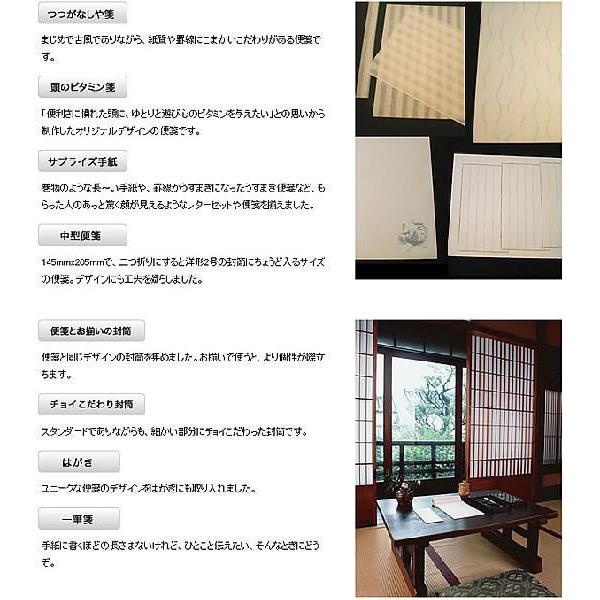 つつがなしや箋
まじめで古風でありながら、紙質や罫線にこまかいこだわりがある便箋で
す。
頭のビタミン箋
「便利さに慣れた頭に、ゆとりと遊び心のビタミンを与えたい」との思いから
制作したオリジナルデザインの便箋です。
サプライズ手紙
巻物のような長〜い手紙や、罫線がうずまきになったうずまき便箋など、も
らった人のあっと驚く顔が見えるようなレターセットや便箋を揃えました。
中型便箋
145mmx205mmで、二つ折りにすると洋形2号の封筒にちょうど入るサイズ
の便箋。デザインにも工夫を凝らしました。
便箋とお揃いの封筒
便箋と同じデザインの封筒を集めました。お揃いで使うと、より個性が際立
ちます。
チョイこだわり封筒
スタンダードでありながらも、細かい部分にチョイこだわった封筒です。
はがき
ユニークな便箋のデザインをはがきにも取り入れました。
一筆箋
手紙に書くほどの長さまないけれど、ひとこと伝えたい、そんなときにどう
ぞ。